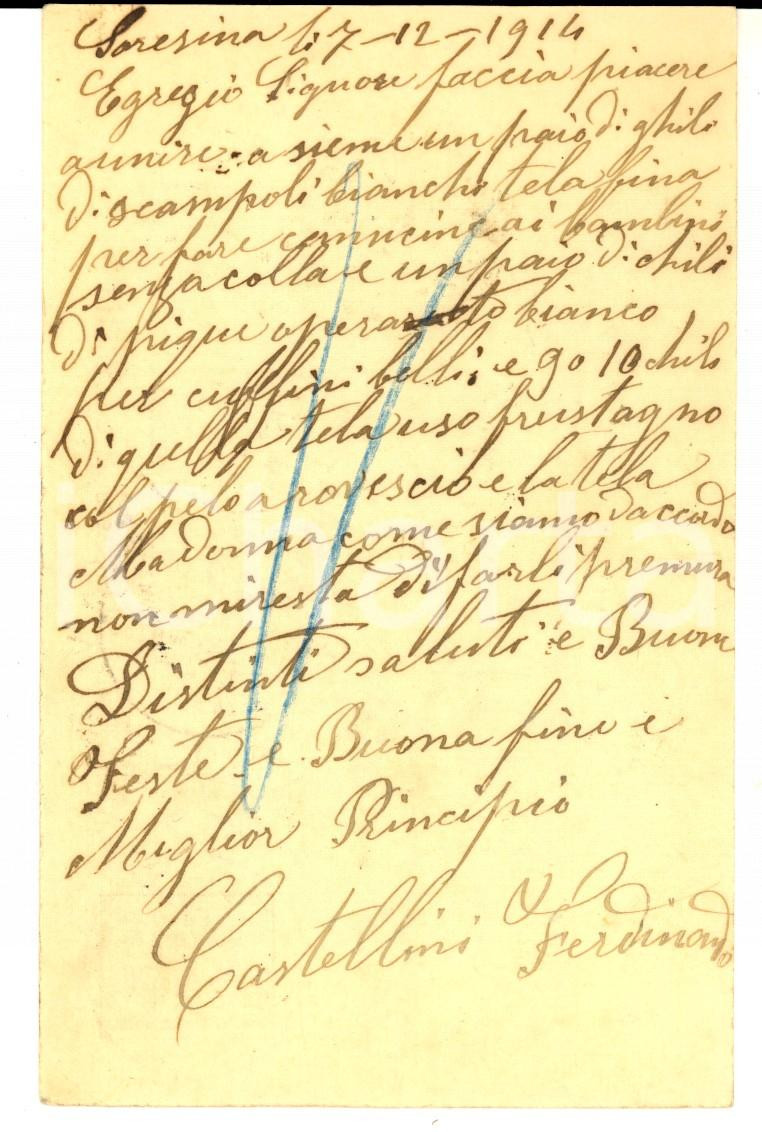 Soresina li 7-12-1914
Egregio Signore faccia piacere
a unire a sieme un paio di ghili
di scampoli bianchi tela fina
per fare camicine ai bambini
senza colla e un paio di chili
di pique operato bianco
per cuffini belli, e 90 10 chili
di quella tela uso frustagno
col pelo a rovescio e la tela
Madonna come siamo daccordo
non mi resta di farli premura
Distinti saluti e Buone
Feste e Buona fine e
Miglior Principio
Castellini Ferdinando